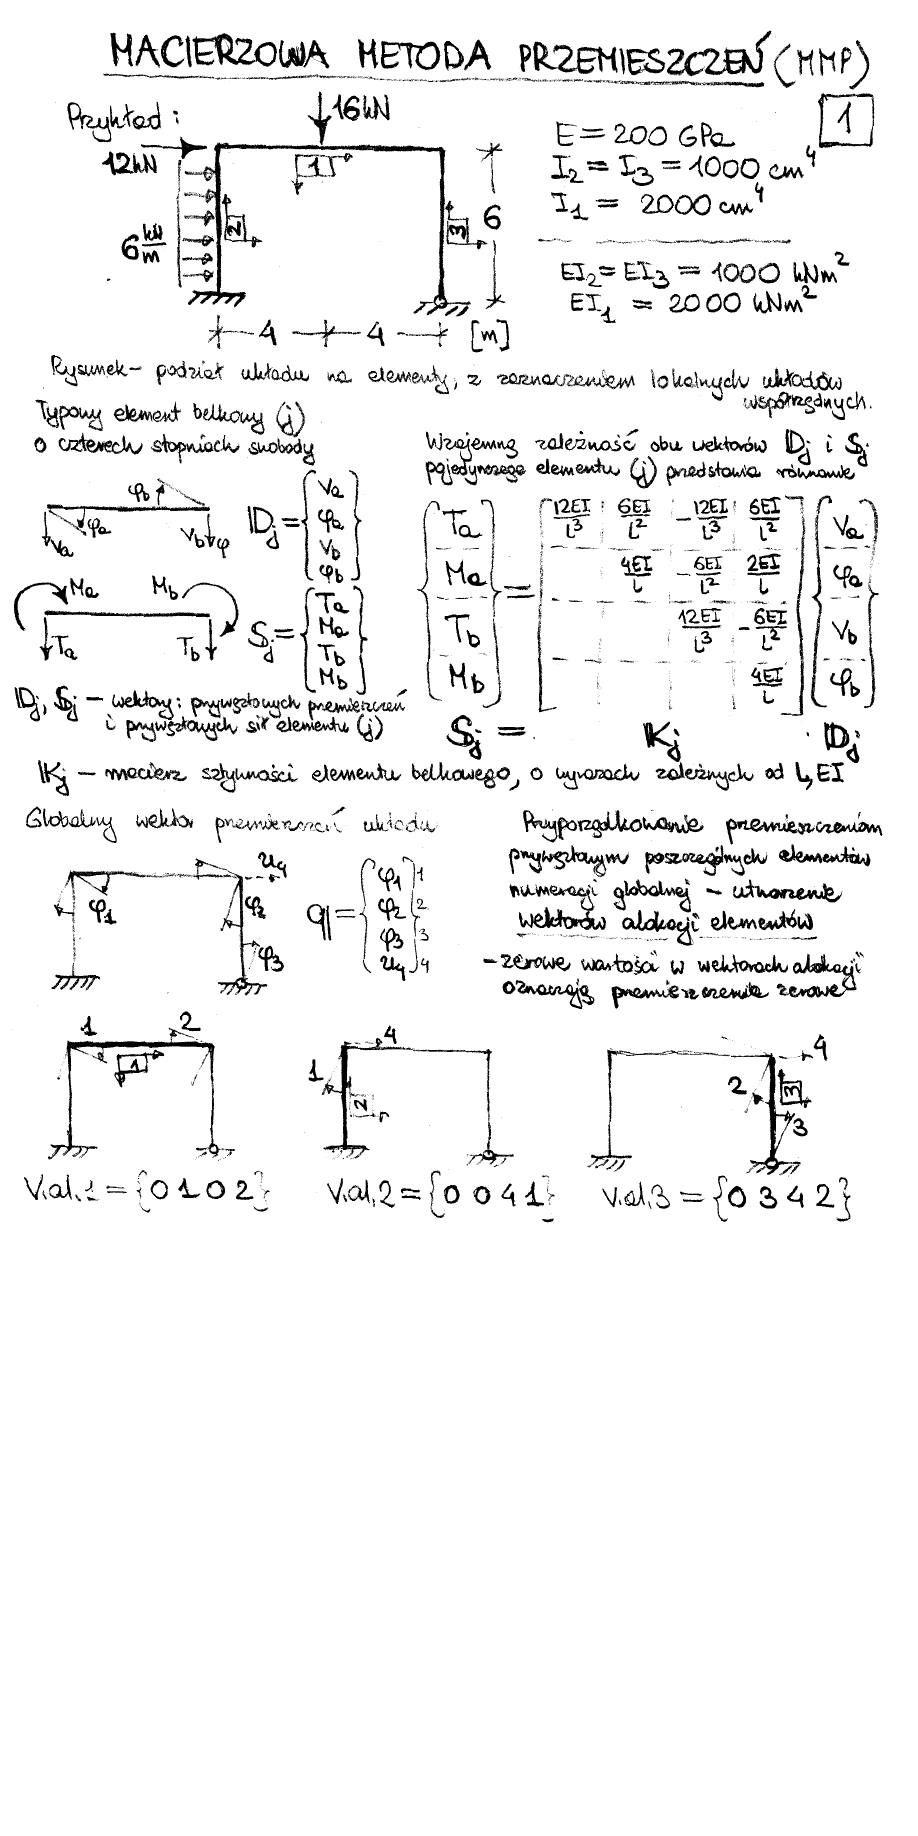 MACIERZOWA METODA PRZEMIESZCZEŃ (MMP)
1
Przykład:
16kN
12kN
6 kN/m
1
2
3
6
4 4 [m]
E = 200 GPa
I2 = I3 = 1000 cm⁴
I1 = 2000 cm⁴
EI2 = EI3 = 1000 kNm²
EI1 = 2000 kNm²
Rysunek – podział układu na elementy, z zaznaczeniem lokalnych układów
współrzędnych.
Typowy element belkowy (j)
o czterech stopniach swobody
φb
φa
Va
Vb
φ
Dj = {Va φa Vb φb}
Ma
Mb
Ta
Tb
Sj = {Ta Ma Tb Mb}
Dj, Sj – wektory: przywęzłowych przemieszczeń
i przywęzłowych sił elementu (j)
Wzajemną zależność obu wektorów Dj i Sj
pojedynczego elementu (j) przedstawia równanie
Ta 12EI/L³ 6EI/L² -12EI/L³ 6EI/L² Va
Ma 4EI/L -6EI/L² 2EI/L φa
=
Tb 12EI/L³ -6EI/L² Vb
Mb 4EI/L φb
Sj = Kj · Dj
Kj – macierz sztywności elementu belkowego, o wyrazach zależnych od L, EI
Globalny wektor przemieszczeń układu
u4
φ1
φ2
φ3
q = {φ1 φ2 φ3 u4}
1
2
3
4
Przyporządkowanie przemieszczeniom
przywęzłowym poszczególnych elementów
numeracji globalnej – utworzenie
wektorów alokacji elementów
– zerowe wartości w wektorach alokacji
oznaczają przemieszczenia zerowe
1 2
1
4
1
2
4
2
3
3
V.al.1 = {0 1 0 2}
V.al.2 = {0 0 4 1}
V.al.3 = {0 3 4 2}